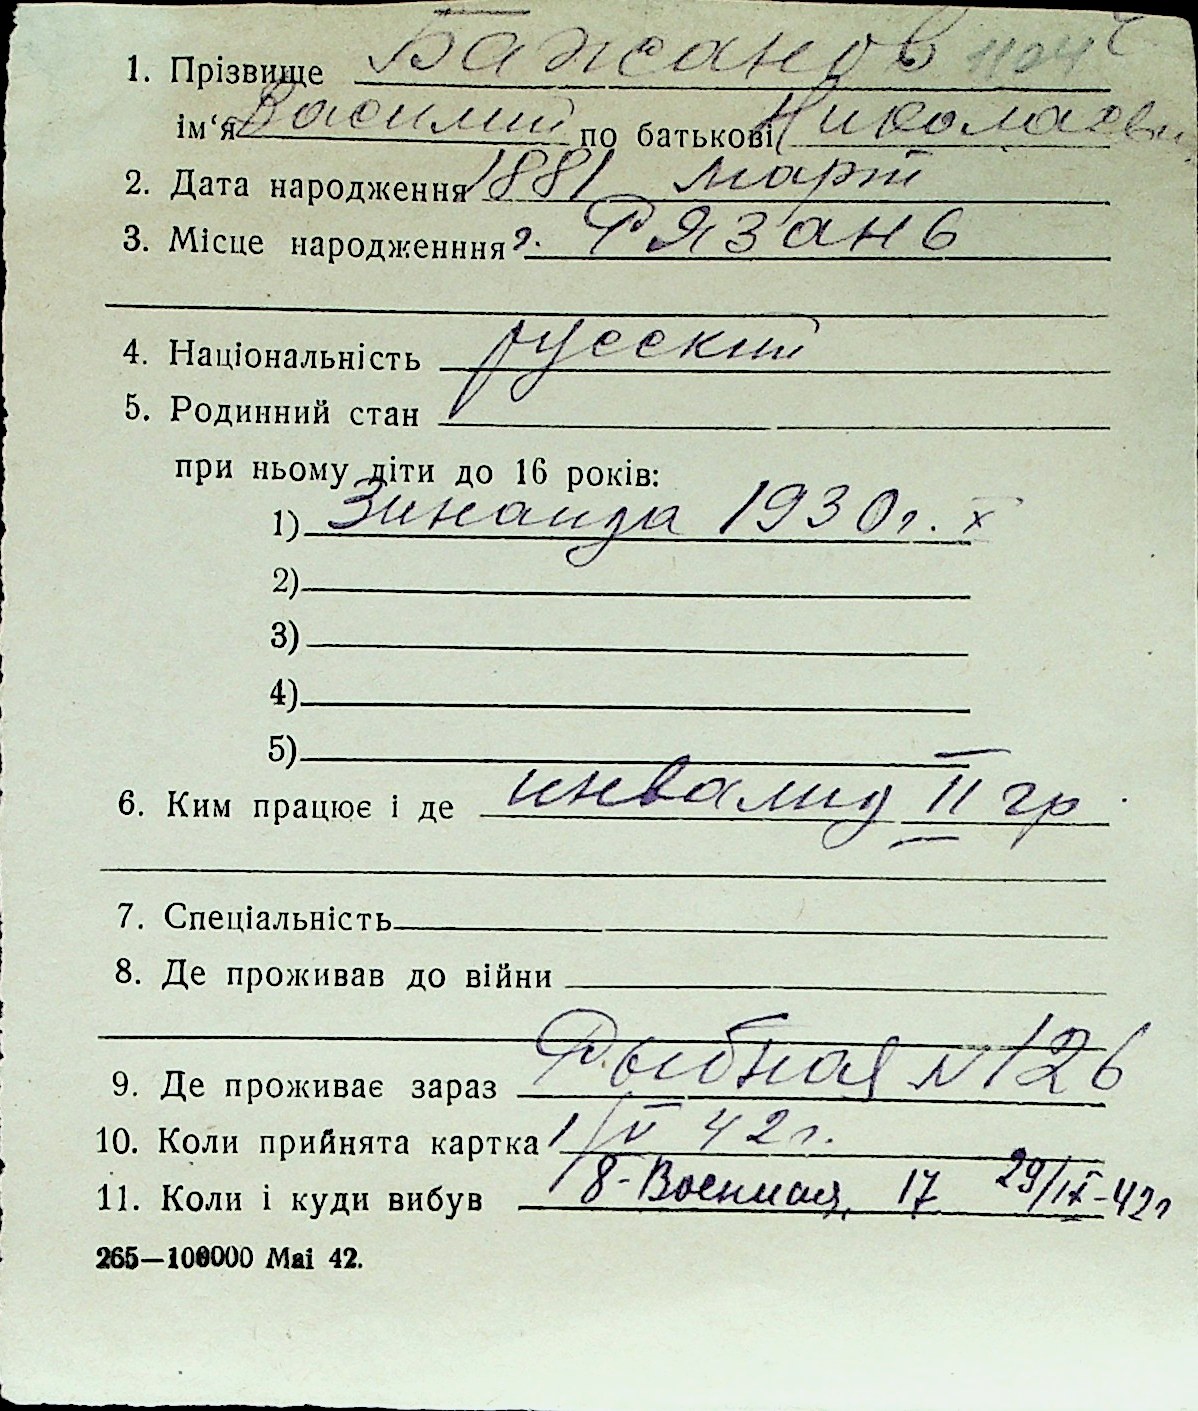 1. Прізвище Бажанов 1104
ім‘я Василий по батькові Николаеви
2. Дата народження 1881 март
3. Місце народженння г. Рязань
4. Національність русский
5. Родинний стан
при ньому діти до 16 років:
1) Зинаида 1930г. х
2)
3)
4)
5)
6. Ким працює і де инвалид II гр
7. Спеціальність
8. Де проживав до війни
9. Де проживає зараз Рыбная № 126
10. Коли прийнята картка 1/V 42г.
11. Коли і куди вибув 18-Военная, 17 29/IX-42г
265—100000 Mai 42.